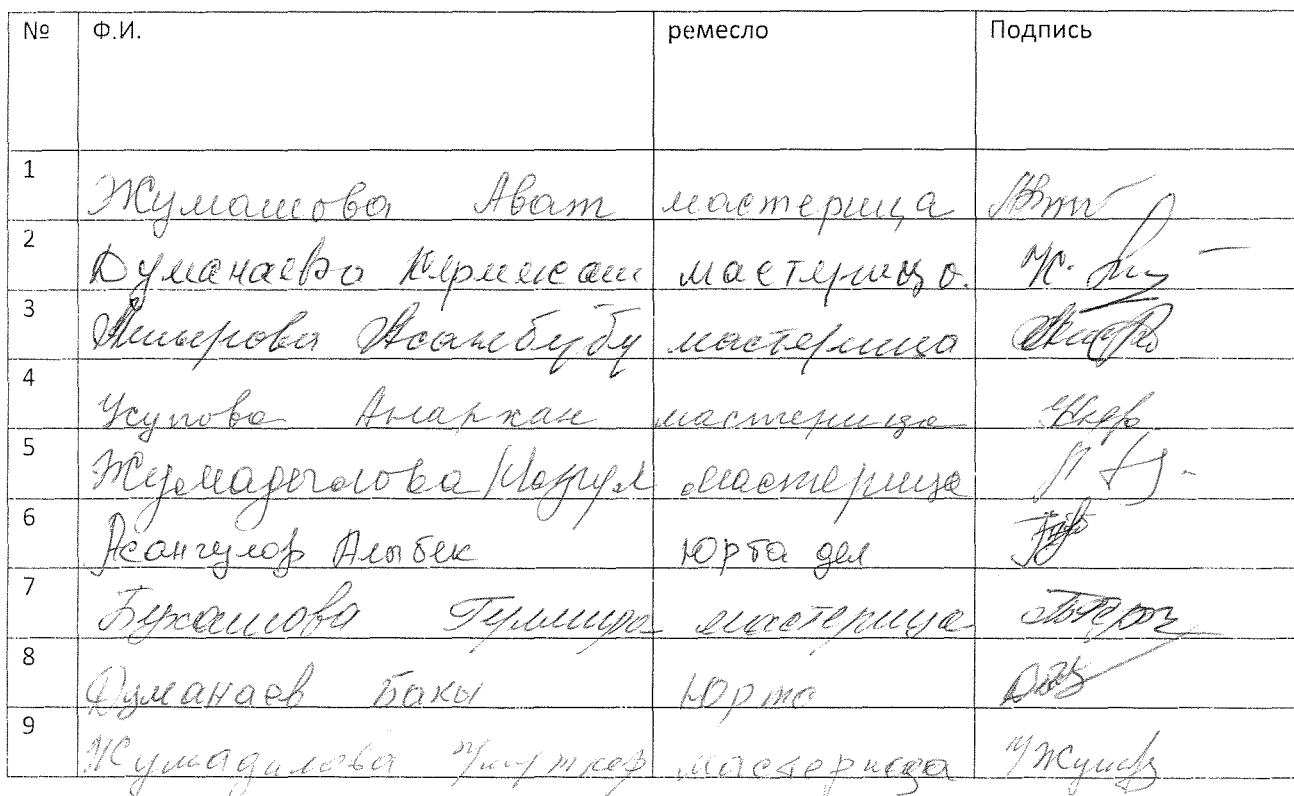 № Ф.И. ремесло Подпись
1 Жумашова Абат мастерица
2 Думанаева Кермекаш мастерица.
3 Ашырова Асанбубу мастерица
4 Усупова Анархан мастерица
5 Жумадылова Назгул мастерица
6 Асангулов Алыбек Юрта дел
7 Букашова Гулмира мастерица
8 Думанаев Бакы Юрта
9 Жумадилова мастерица